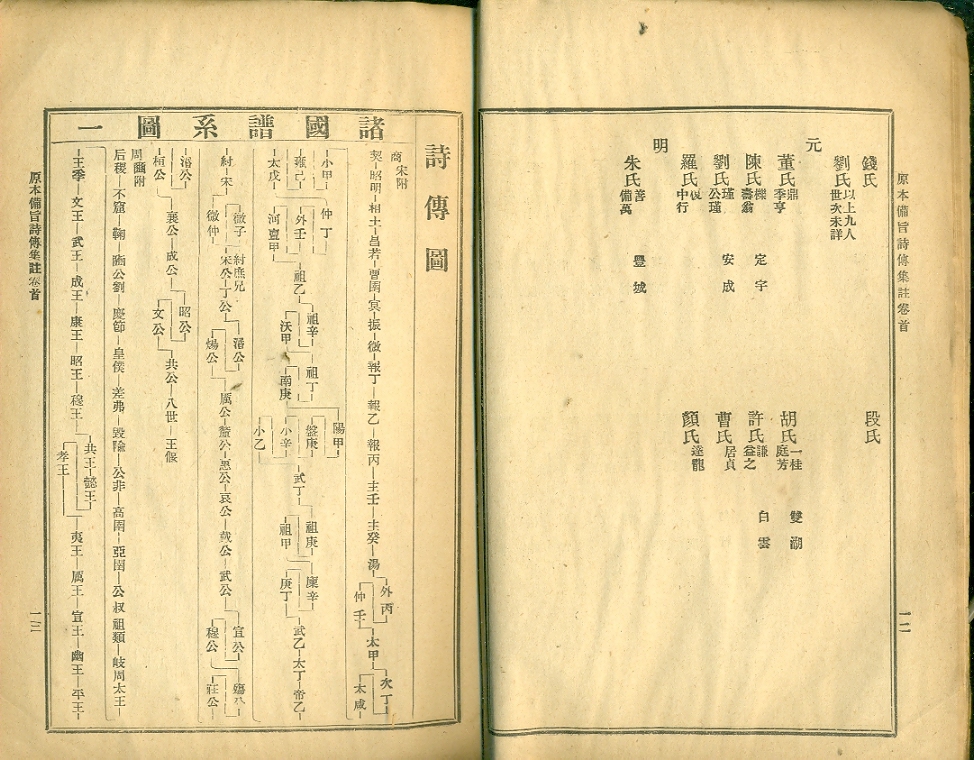 原本備旨詩傳集註卷首 一二
錢氏 段氏
劉氏 以上九人 世次未詳
元
董氏 鼎 季亨 胡氏 一桂 庭芳 雙湖
陳氏 櫟 壽翁 定宇 許氏 謙 益之 白雲
劉氏 瑾 公瑾 安成 曹氏 居貞
羅氏 中行 顏氏 達龍
明
朱氏 善 備萬 豐城
詩傳圖
諸國譜系圖一
商 宋附
契—昭明—相土—昌若—曹圉—冥—振—微—報丁—報乙—報丙—主壬—主癸—湯 外丙 仲壬 太甲
小甲 雍己 太戊 仲丁 外壬 河亶甲 祖乙 祖辛 沃甲 祖丁 南庚 陽甲 盤庚 小辛 小乙 武丁 祖庚 祖甲 廩辛 庚丁 武乙—太丁—帝乙
紂—宋 微子 紂庶兄 微仲 宋公—丁公 湣公 煬公 厲公—釐公—惠公—哀公—戴公—武公 宣公 穆公 殤公 莊公
湣公 桓公 襄公—成公 昭公 文公 共公—八世—王偃
周 豳附
后稷—不窟—鞠—陶公劉—慶節—皇僕—差弗—毀隃—公非—高圉—亞圉—公叔祖類—岐周太王
王季—文王—武王—成王—康王—昭王—穆王 共王—懿王 孝王 夷王—厲王—宣王—幽王—平王
原本備旨詩傳集註卷首 一三